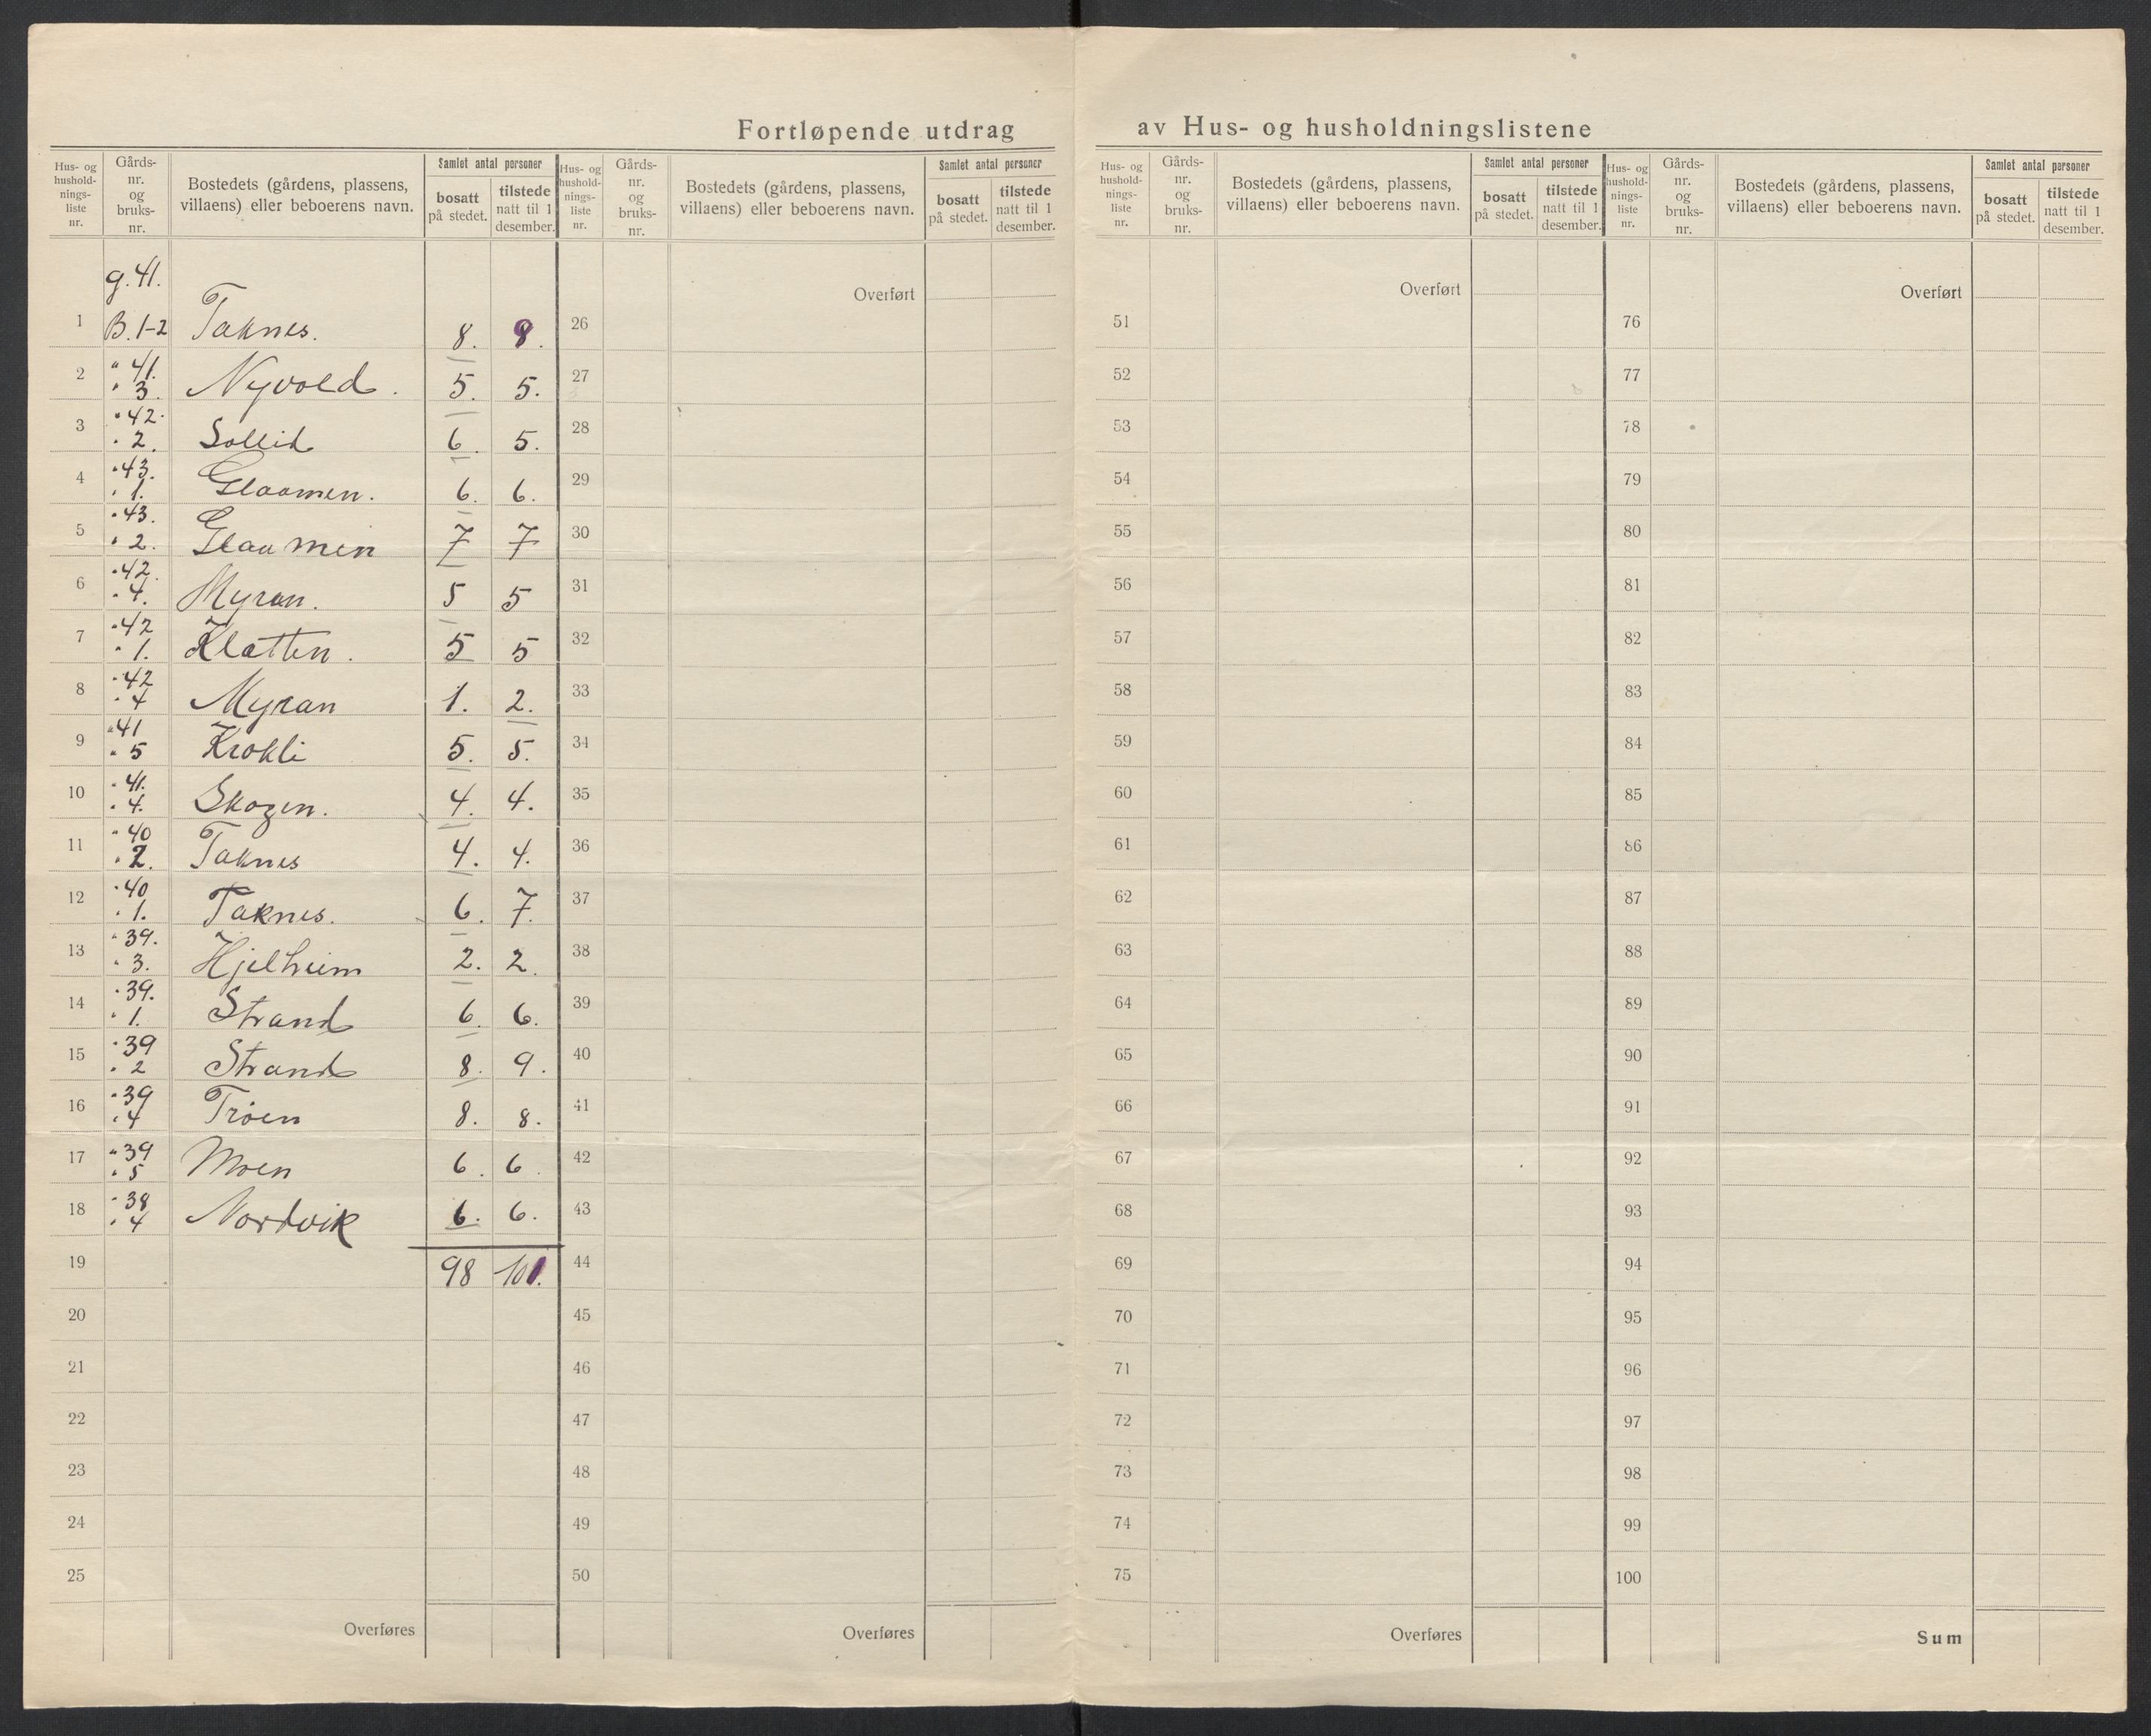 Fortløpende utdrag av Hus- og husholdningslistene
Hus- og hushold- nings- liste nr. | Gårds- nr. og bruks- nr. | Bostedets (gårdens, plassens, villaens) eller beboerens navn. | Samlet antal personer | bosatt på stedet. | tilstede natt til 1 desember.
Hus- og hushold- nings- liste nr. | Gårds- nr. og bruks- nr. | Bostedets (gårdens, plassens, villaens) eller beboerens navn. | Samlet antal personer | bosatt på stedet. | tilstede natt til 1 desember.
Hus- og hushold- nings- liste nr. | Gårds- nr. og bruks- nr. | Bostedets (gårdens, plassens, villaens) eller beboerens navn. | Samlet antal personer | bosatt på stedet. | tilstede natt til 1 desember.
Hus- og hushold- nings- liste nr. | Gårds- nr. og bruks- nr. | Bostedets (gårdens, plassens, villaens) eller beboerens navn. | Samlet antal personer | bosatt på stedet. | tilstede natt til 1 desember.
g. 41.
1 B. 1-2 Taknes. 8. 8.
2 " 41. " 3. Nyvold. 5. 5.
3 " 42. " 2. Sollid 6. 5.
4 " 43. " 1. Glaamen. 6. 6.
5 " 43. " 2. Glaamen 7 7
6 " 42. " 4. Myran. 5 5
7 " 42 " 1. Klatten. 5 5
8 " 42 " 4 Myran 1. 2.
9 " 41 " 5 Krokli 5. 5.
10 " 41. " 4. Skogen. 4. 4.
11 " 40 " 2. Taknes 4. 4.
12 " 40 " 1. Taknes. 6. 7.
13 " 39. " 3. Hjelheim 2. 2.
14 " 39. " 1. Strand 6. 6.
15 " 39 " 2 Strand 8. 9.
16 " 39 " 4 Trøen 8. 8.
17 " 39 " 5 Moen 6. 6.
18 " 38 " 4 Nordvik 6. 6.
19 98 101.
20
21
22
23
24
25
Overføres
Overført
26
27
28
29
30
31
32
33
34
35
36
37
38
39
40
41
42
43
44
45
46
47
48
49
50
Overføres
Overført
51
52
53
54
55
56
57
58
59
60
61
62
63
64
65
66
67
68
69
70
71
72
73
74
75
Overføres
Overført
76
77
78
79
80
81
82
83
84
85
86
87
88
89
90
91
92
93
94
95
96
97
98
99
100
Sum